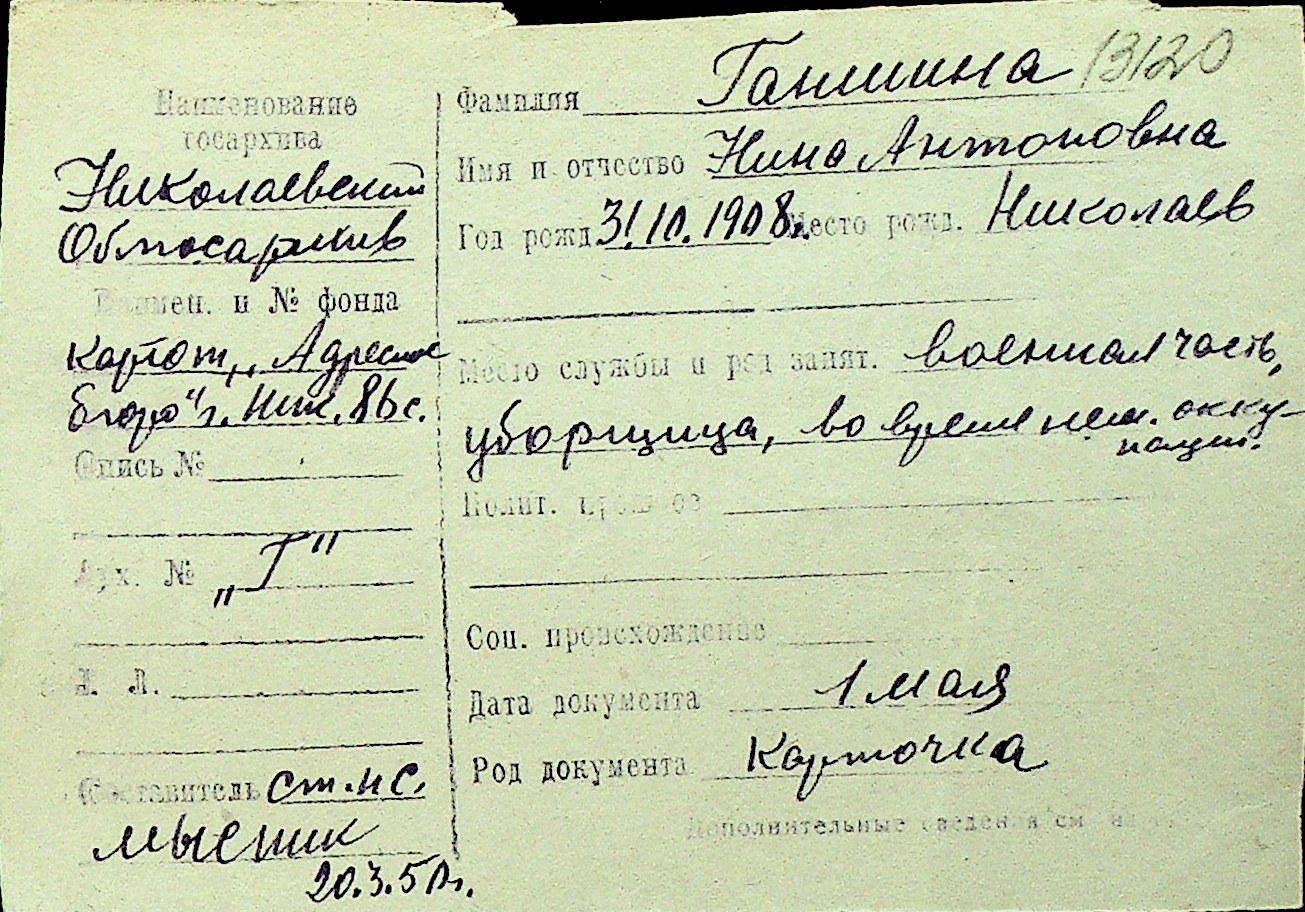 Наименование
госархива
Николаевский
Облгосархив
Наимен. и № фонда
картот. „Адресное
бюро" г. Ник. 86 с.
Опись №
Арх. № „Г"
Л. Л.
Составитель ст. н с.
20.3.50 г.
13120
Фамилия Ганшина
Имя и отчество Нина Антоновна
Год рожд 31.10.1908 г. Место рожд. Николаев
Место службы и род занят. военная часть,
уборщица, во время нем. окку-
пации.
Полит. прошлое
Соц. происхождение
Дата документа 1 мая
Род документа Карточка
Дополнительные сведения см. на